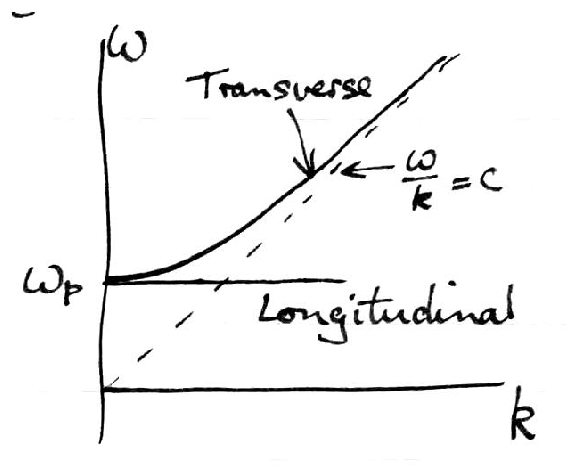 ω
Transverse
ω/k = c
ωp
Longitudinal
k